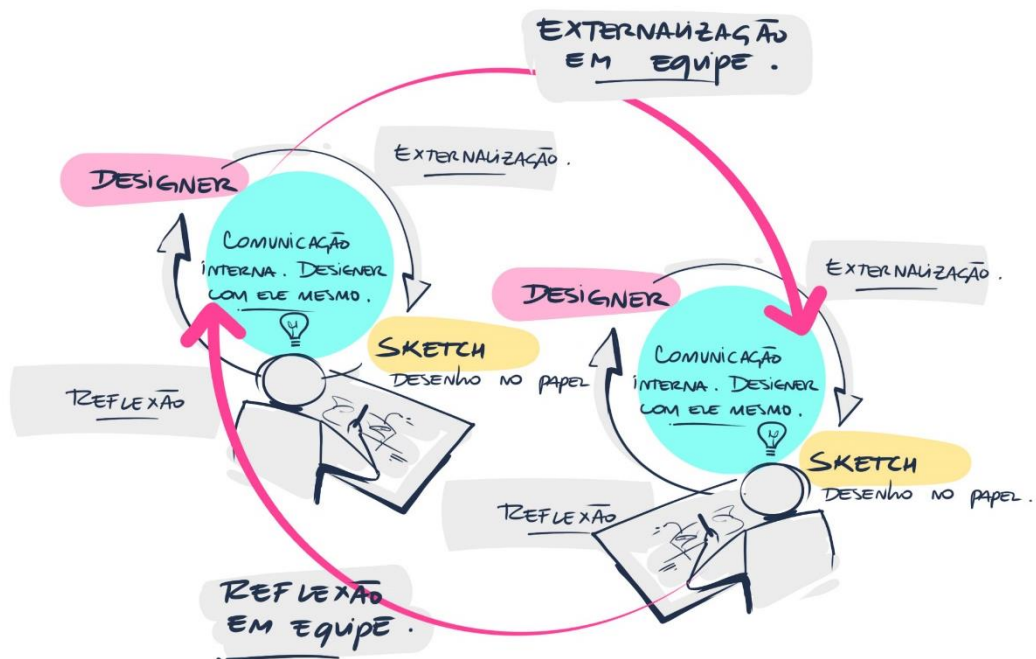 EXTERNALIZAÇÃO
EM EQUIPE.
EXTERNALIZAÇÃO.
DESIGNER
COMUNICAÇÃO
INTERNA. DESIGNER
COM ELE MESMO.
SKETCH
DESENHO NO PAPEL
REFLEXÃO
EXTERNALIZAÇÃO.
DESIGNER
COMUNICAÇÃO
INTERNA. DESIGNER
COM ELE MESMO.
SKETCH
DESENHO NO PAPEL.
REFLEXÃO
REFLEXÃO
EM EQUIPE.